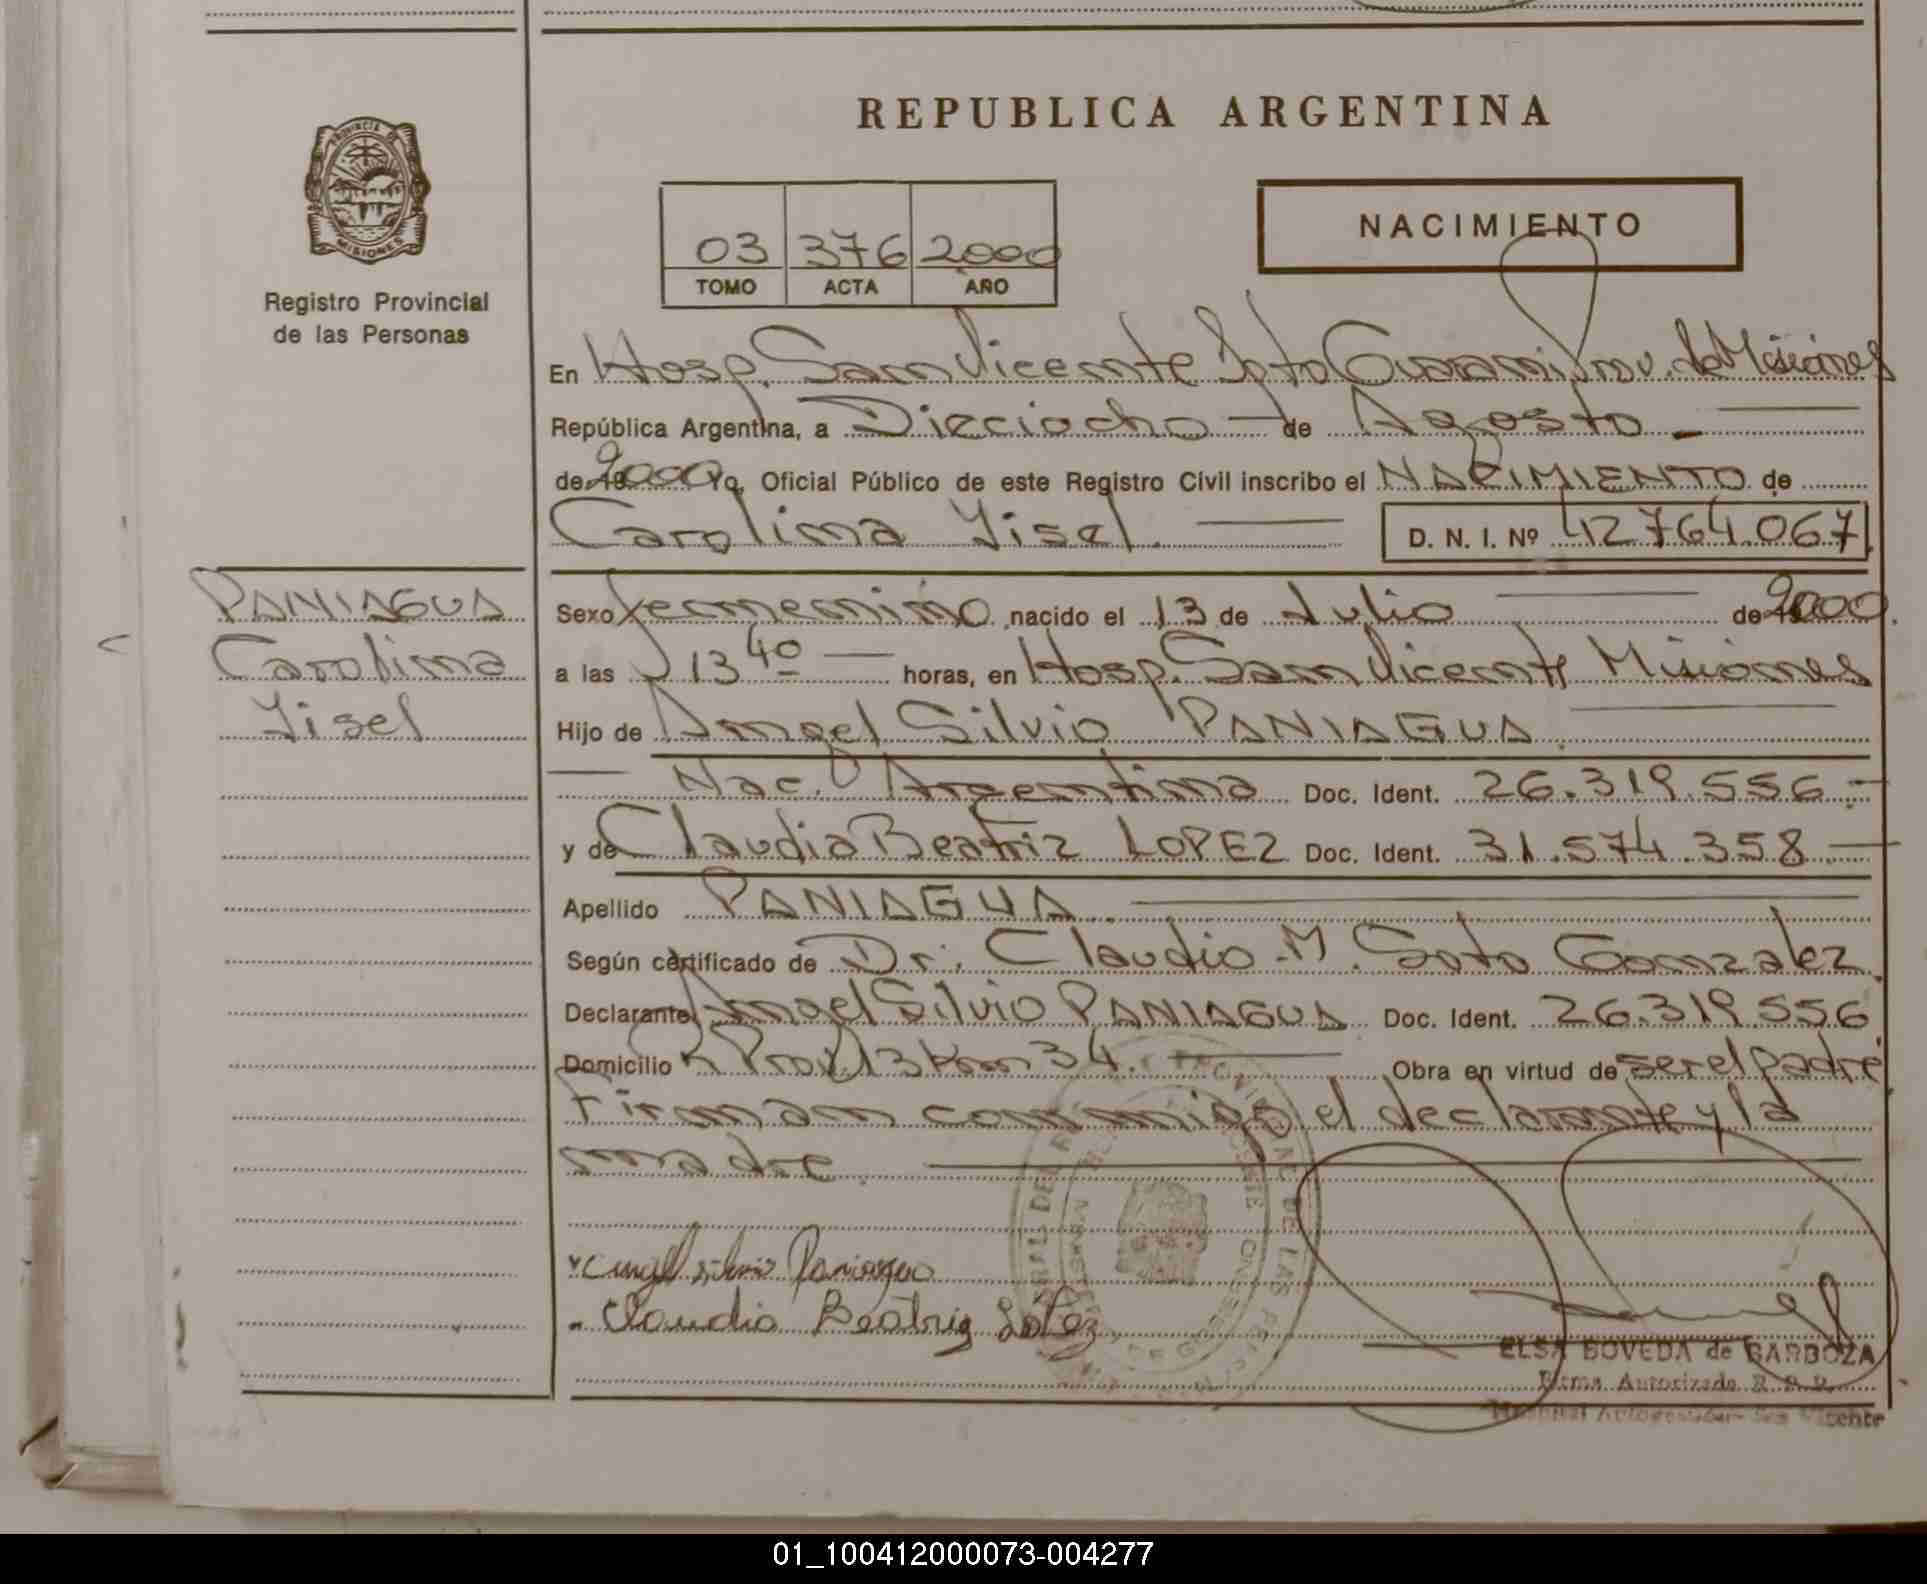 REPUBLICA ARGENTINA
PROVINCIA DE
MISIONES
Registro Provincial
de las Personas
03 376 2000
TOMO ACTA AÑO
NACIMIENTO
En Hosp. San Vicente Dpto Guarani Prov. de Misiones
República Argentina, a Dieciocho de Agosto
de 19 2000 Yo, Oficial Público de este Registro Civil inscribo el NACIMIENTO de
Carolina Yisel. D. N. I. Nº 42764067
PANIAGUA
Carolina
Yisel
Sexo femenino nacido el 13 de Julio de 2000
a las 13 40 horas, en Hosp. San Vicente Misiones
Hijo de Angel Silvio PANIAGUA
Nac. Argentina Doc. Ident. 26.319.556.-
y de Claudia Beatriz LOPEZ Doc. Ident. 31.574.358.-
Apellido PANIAGUA
Según certificado de Dr. Claudio M. Soto Gonzalez
Declarante Angel Silvio PANIAGUA Doc. Ident. 26.319.556
Domicilio R Prov 13 Km 34. Obra en virtud de ser el padre
Firman conmigo el declarante y la
madre.
Angel silvio Paniagua
Claudia Beatriz Lopez
ELSA BOVEDA de BARBOZA
Firma Autorizada R. P. P.
Hospital Autogestión San Vicente
01_100412000073-004277